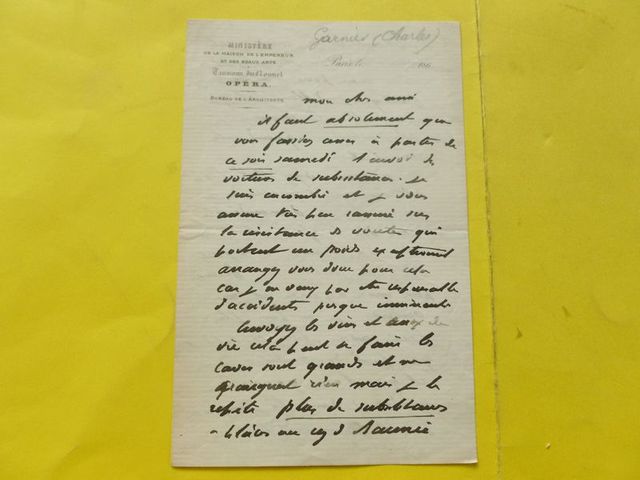 Garnier (Charles)
MINISTÈRE
DE LA MAISON DE L'EMPEREUR
ET DES BEAUX ARTS
Travaux du Nouvel
OPÉRA
BUREAU DE L'ARCHITECTE
Paris le 186
mon cher ami
il faut absolument que
vous fassiez cesser à partir de
ce soir samedi l'envoi de
voitures de subsistances. je
suis encombré et je vous
assure très peu rassuré sur
la résistance de voutes qui
portent un poids exceptionnel
arrangez vous donc pour cela
car je ne veux pas être responsable
d'accidents presque imminents
Envoyez les vins et eaux de
vie cela peut se faire les
caves sont grandes et ne
craignent rien mais je le
répète plus de subsistances